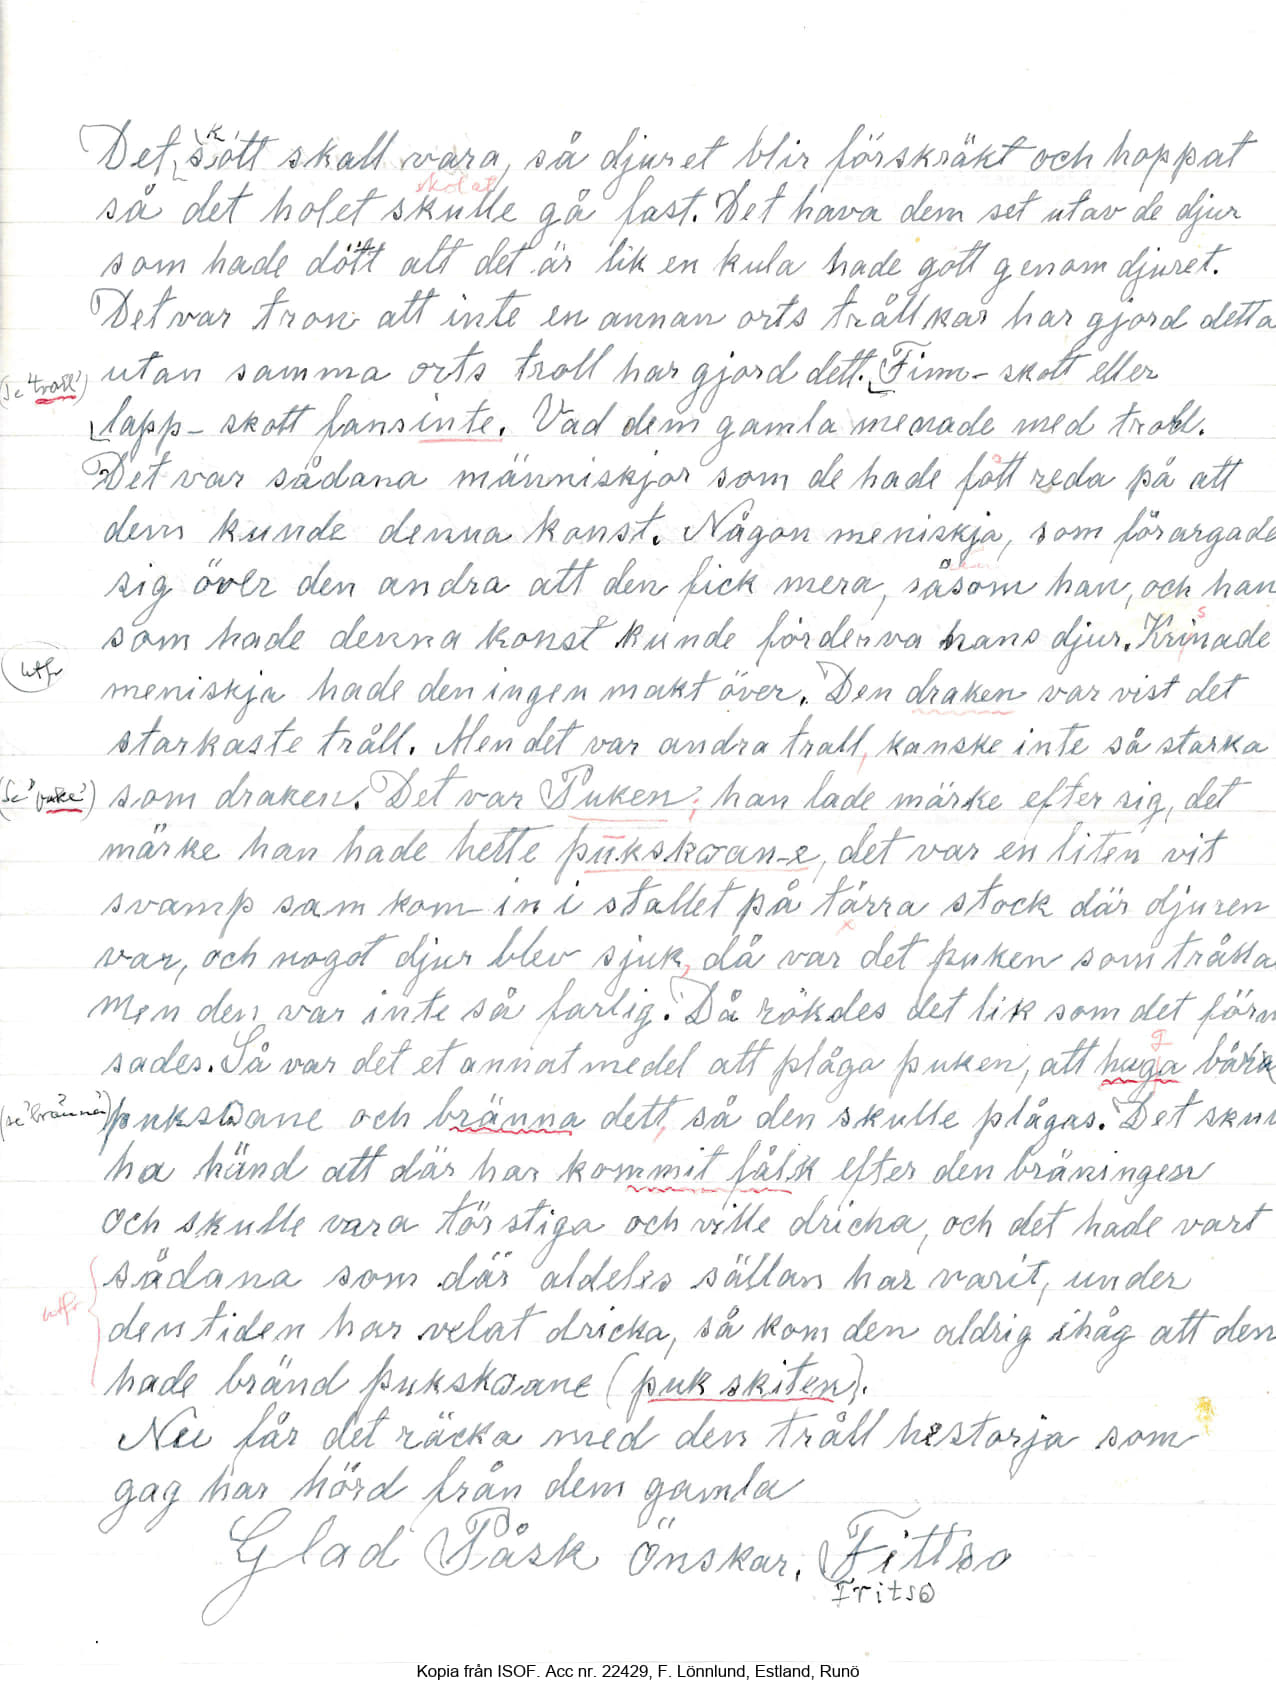 Det skött skall vara, så djuret blir förskräkt och hoppat
skolat
så det holet skulle gå fast. Det hava dem set utav de djur
som hade dött att det är lik en kula hade gott genom djuret.
Det var tron att inte en annan orts trållkar har gjord detta
(se 'troll') utan samma orts troll har gjord dett. Finn- skott eller
lapp- skott fans inte. Vad dem gamla menade med troll.
Det var sådana människjor som de hade fått reda på att
dem kunde denna konst. Någon meniskja, som förargade
sig över den andra att den fick mera, såsom han, och han
som hade denna konst kunde förderva hans djur. Krisnade
utfr meniskja hade den ingen makt över. Den draken var vist det
starkaste tråll. Men det var andra trall, kanske inte så starka
(se 'puke') som draken. Det var Puken; han lade märke efter sig, det
märke han hade hette pūkskwan-e, det var en liten vit
svamp sam kom in i stallet på tårra stock där djuren
var, och nogot djur blev sjuk, då var det puken som trålla
Men den var inte så farlig. Då rökdes det lik som det förn
g
sades. Så var det et annat medel att plåga puken, att huga båra
(se 'bränna') pukswane och bränna dett, så den skulle plågas. Det skul
ha händ att där har kommit fålk efter den bräningen
och skulle vara törstiga och ville dricka, och det hade vart
sådana som där aldeles sällan har varit, under
utfr den tiden har velat dricka, så kom den aldrig ihåg att den
hade bränd pukskwane (puk skiten).
Nu får det räcka med den tråll hestorja som
gag har hörd från dem gamla
Glad Påsk Önskar, Fittso
Fritso
Kopia från ISOF. Acc nr. 22429, F. Lönnlund, Estland, Runö